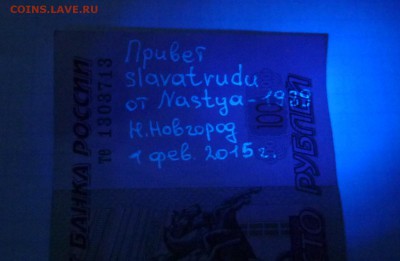 COINS.LAVE.RU
Привет
slavatrudu
от Nastya-1989
Н.Новгород
1 фев. 2015г.
те 1303713
БАНКА РОССИИ
100
СТО РУБЛЕЙ